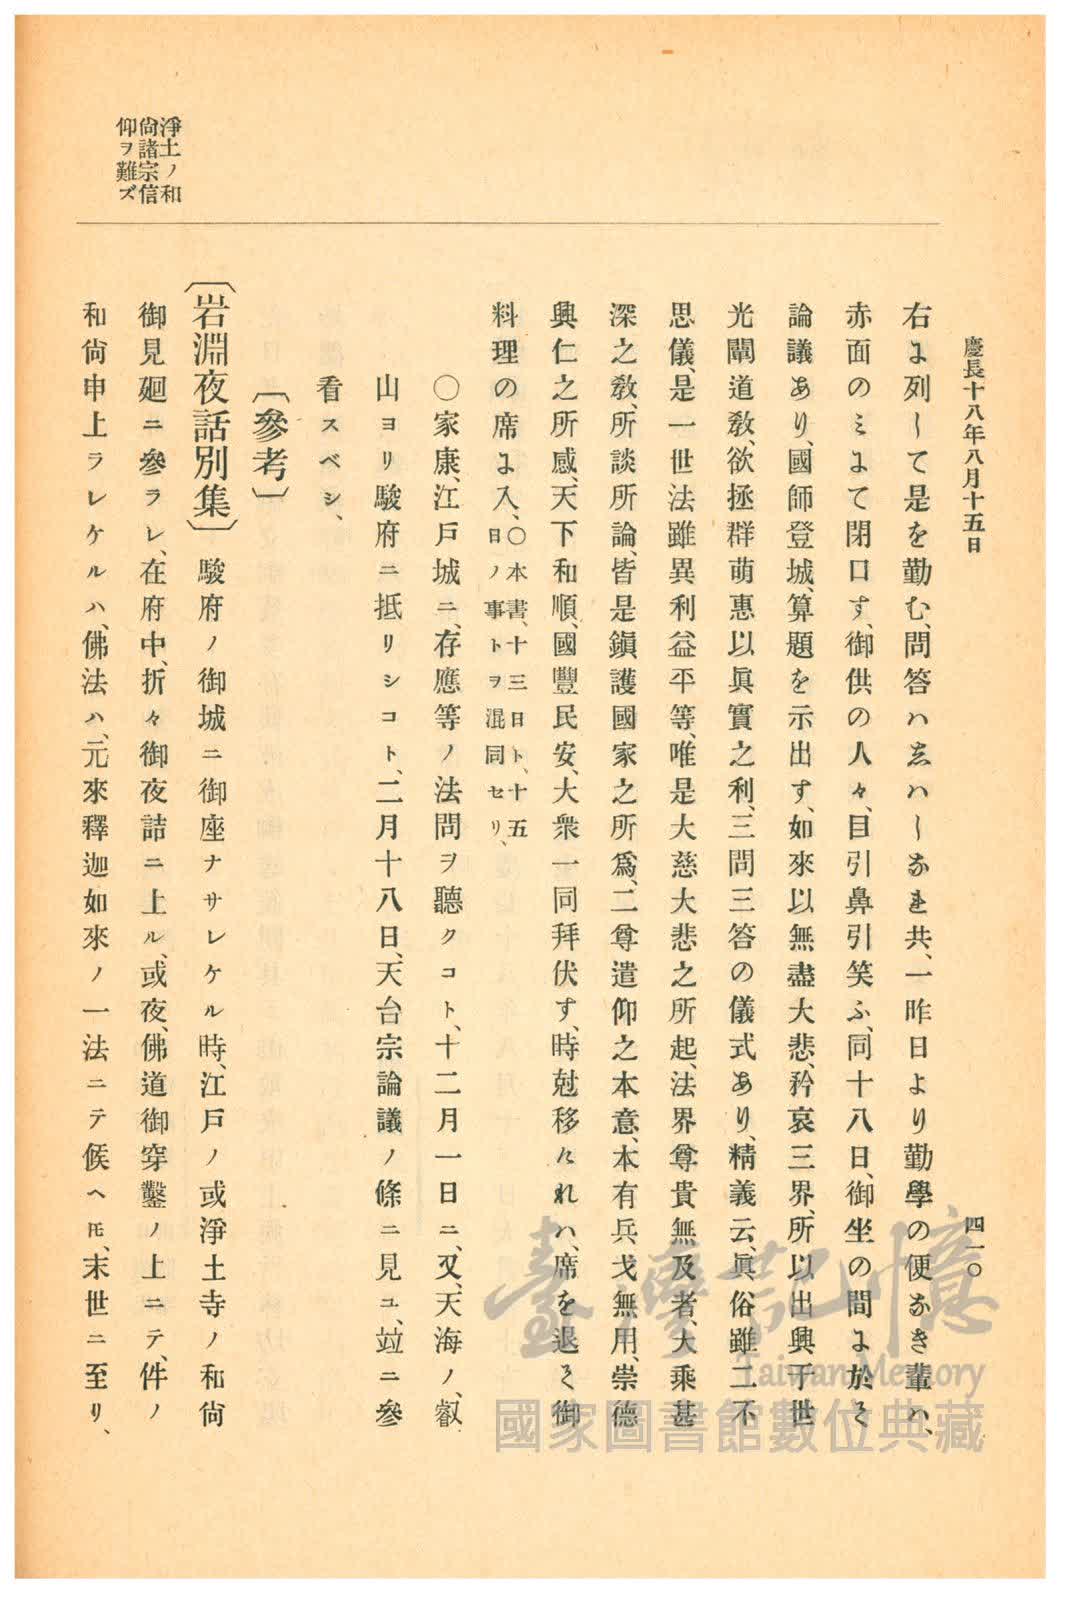 慶長十八年八月十五日
四一〇
淨土ノ和
尙諸宗信
仰ヲ難ズ
右に列して是を勤む、問答ハゑハしなれ共、一昨日より勤學の便なき輩ハ、
赤面のミにて閉口す、御供の人々、目引鼻引笑ふ、同十八日、御坐の間に於そ
論議あり、國師登城、算題を示出す、如來以無盡大悲、矜哀三界、所以出興于世
光闡道教、欲拯群萌惠以眞實之利、三問三答の儀式あり、精義云、眞俗雖二不
思儀、是一世法雖異利益平等、唯是大慈大悲之所起、法界尊貴無及者、大乘甚
深之教、所談所論、皆是鎭護國家之所爲、二尊遣仰之本意、本有兵戈無用、崇德
興仁之所感、天下和順、國豐民安、大衆一同拜伏す、時尅移けれハ、席を退そ御
料理の席に入、〇本書、十三日ト、十五
日ノ事トヲ混同セリ、
〇家康、江戸城ニ、存應等ノ法問ヲ聽クコト、十二月一日ニ、又、天海ノ、叡
山ヨリ駿府ニ抵リシコト、二月十八日、天台宗論議ノ條ニ見ユ、竝ニ參
看スベシ、
〔參考〕
〔岩淵夜話別集〕 駿府ノ御城ニ御座ナサレケル時、江戸ノ或淨土寺ノ和尙
御見廻ニ參ラレ、在府中、折々御夜詰ニ上ル、或夜、佛道御穿鑿ノ上ニテ、件ノ
和尙申上ラレケルハ、佛法ハ、元來釋迦如來ノ一法ニテ候ヘ𪜈、末世ニ至リ、
臺灣記憶
Taiwan Memory
國家圖書館數位典藏